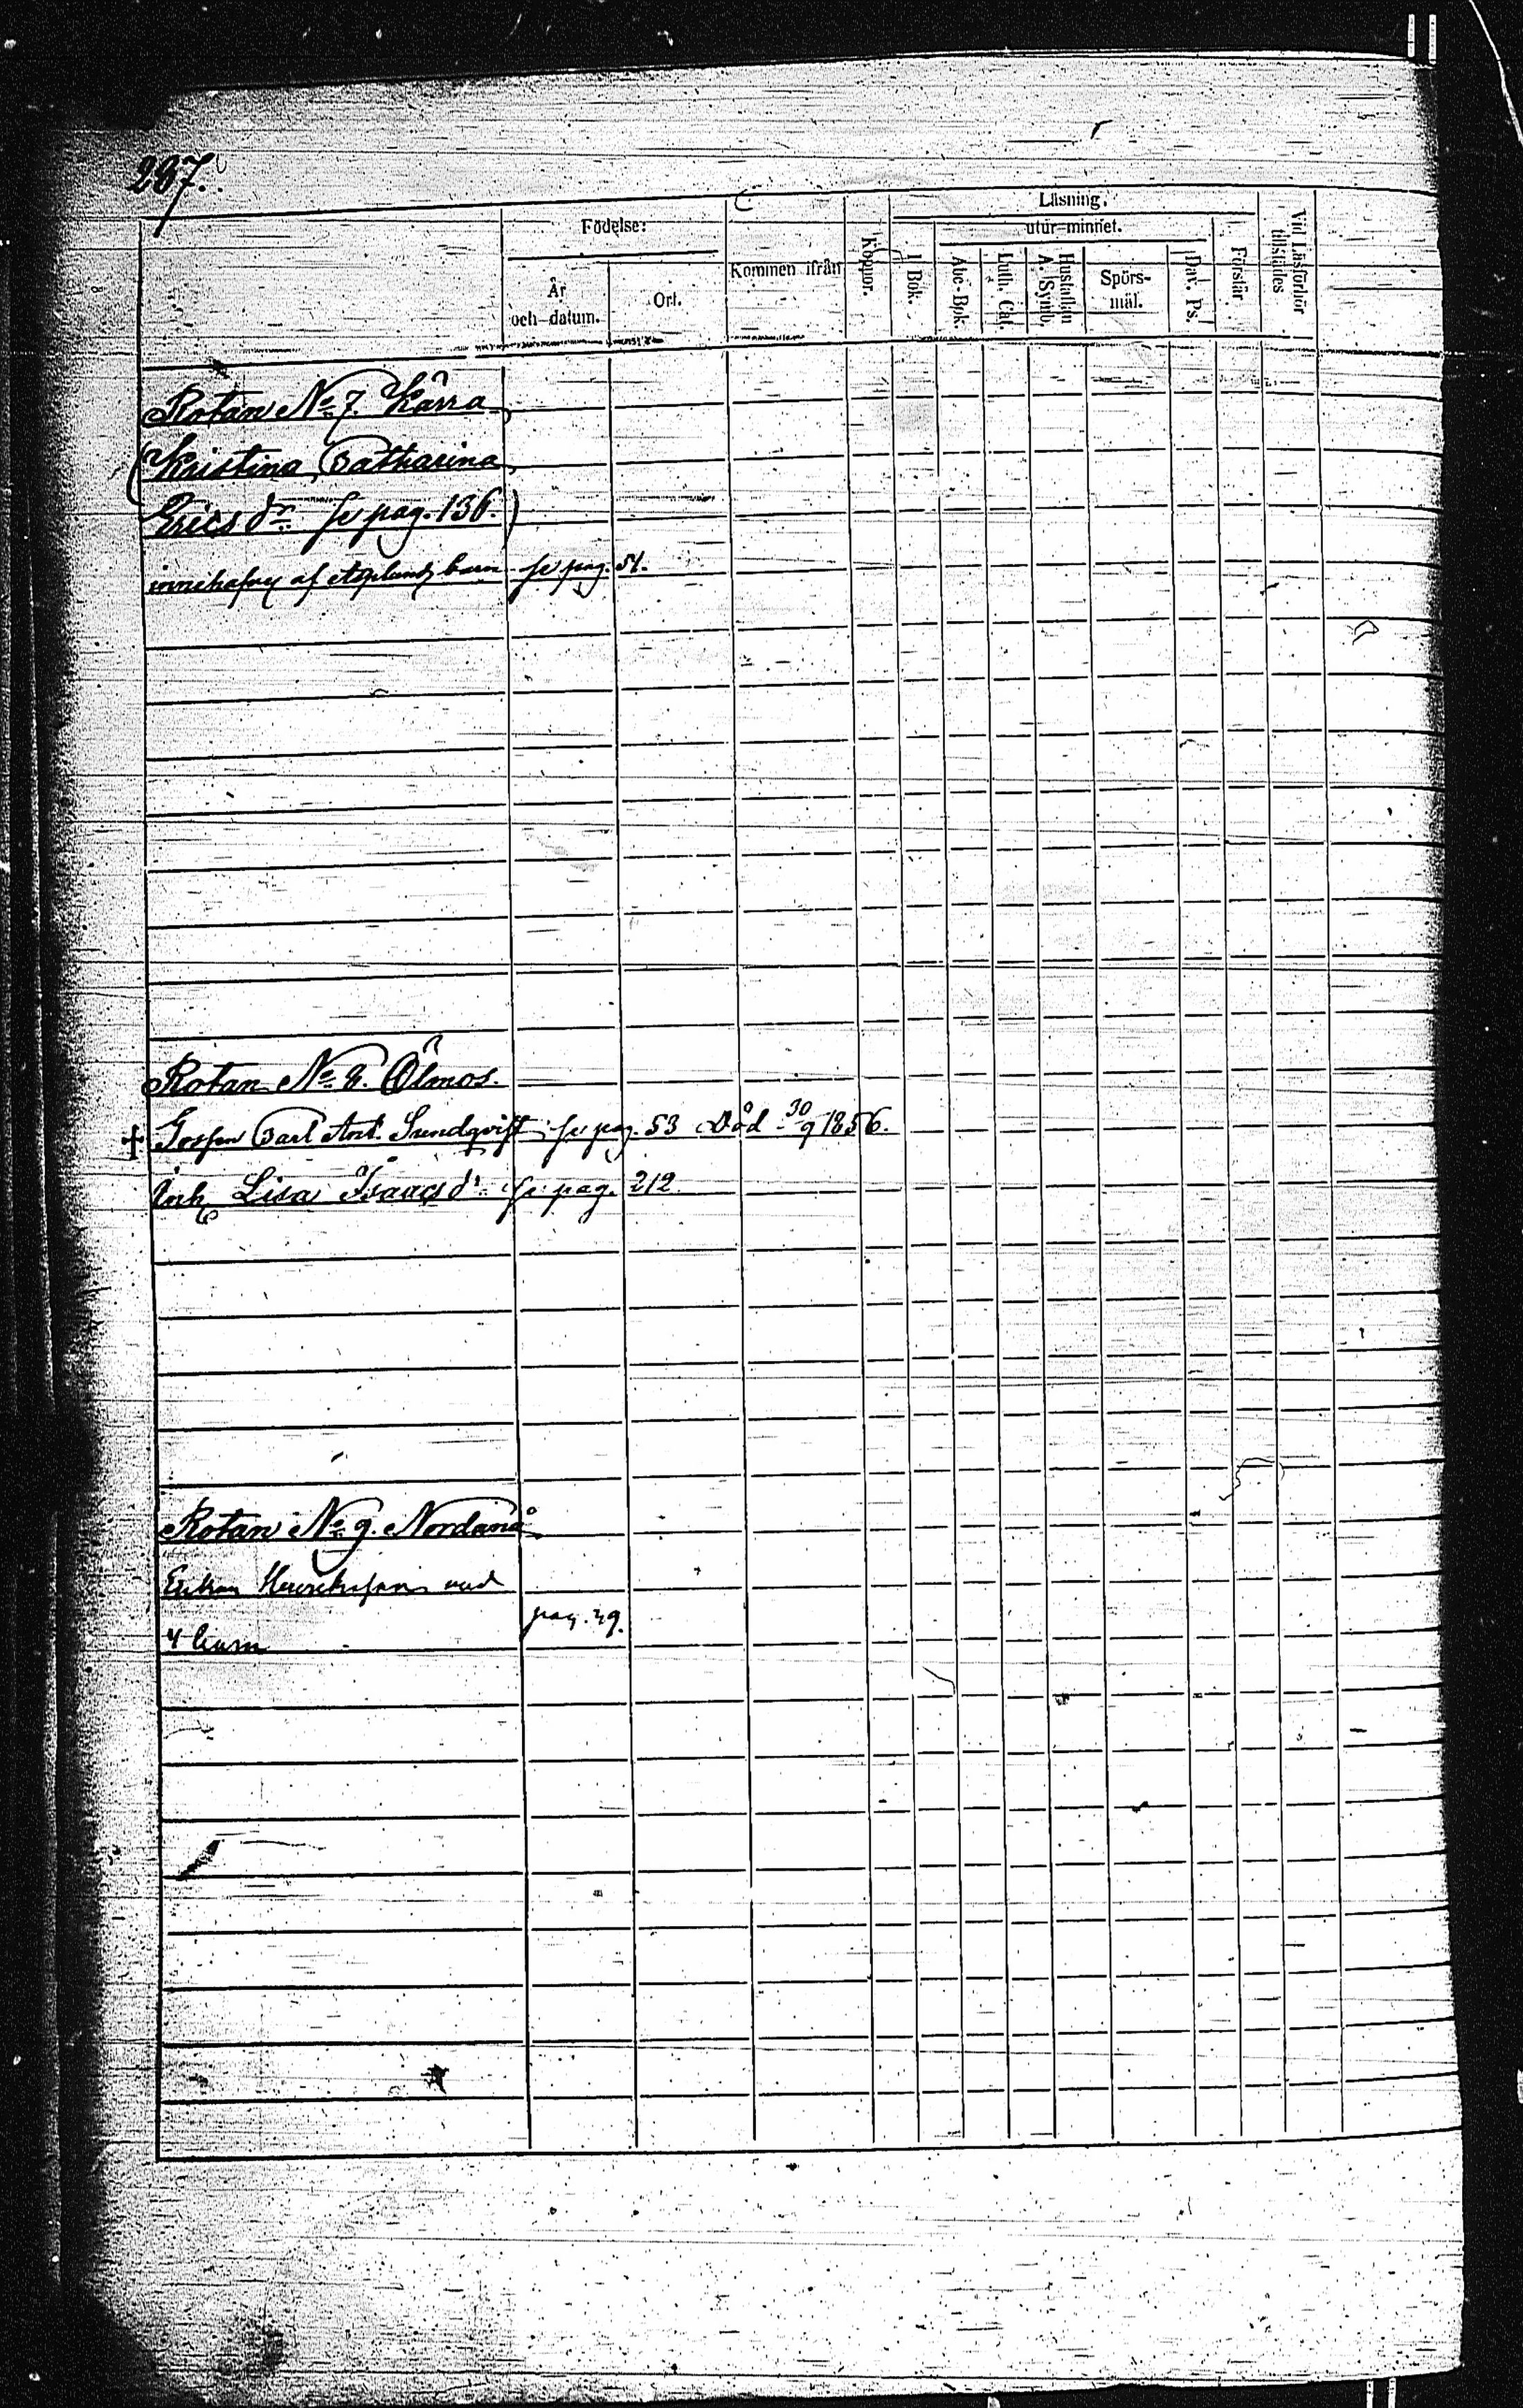 287.
Läsning.
Födelse:
utur minnet.
År och datum.
Ort.
Kommen ifrån
Koppor.
I Bok.
Abc-Bok.
Luth. Cat.
Hustaflan A. Symb.
Spörs-mål.
Dav. Ps.
Förstår
Vid Läsförhör tillstädes
Rotan No 7. Kärra
(Kristina Catharina
Erics dr. se pag. 136.)
innehafves af Asplunds barn se pag. 51.
Rotan No 8. Ölmos.
+ Gossen Carl Ant. Sundqvist se pag. 53 Död 30/9 1856.
Inh. Lisa Isaacs dr. se pag. 212
Rotan No 9. Nordanå
Enkan med
4 barn pag. 29.